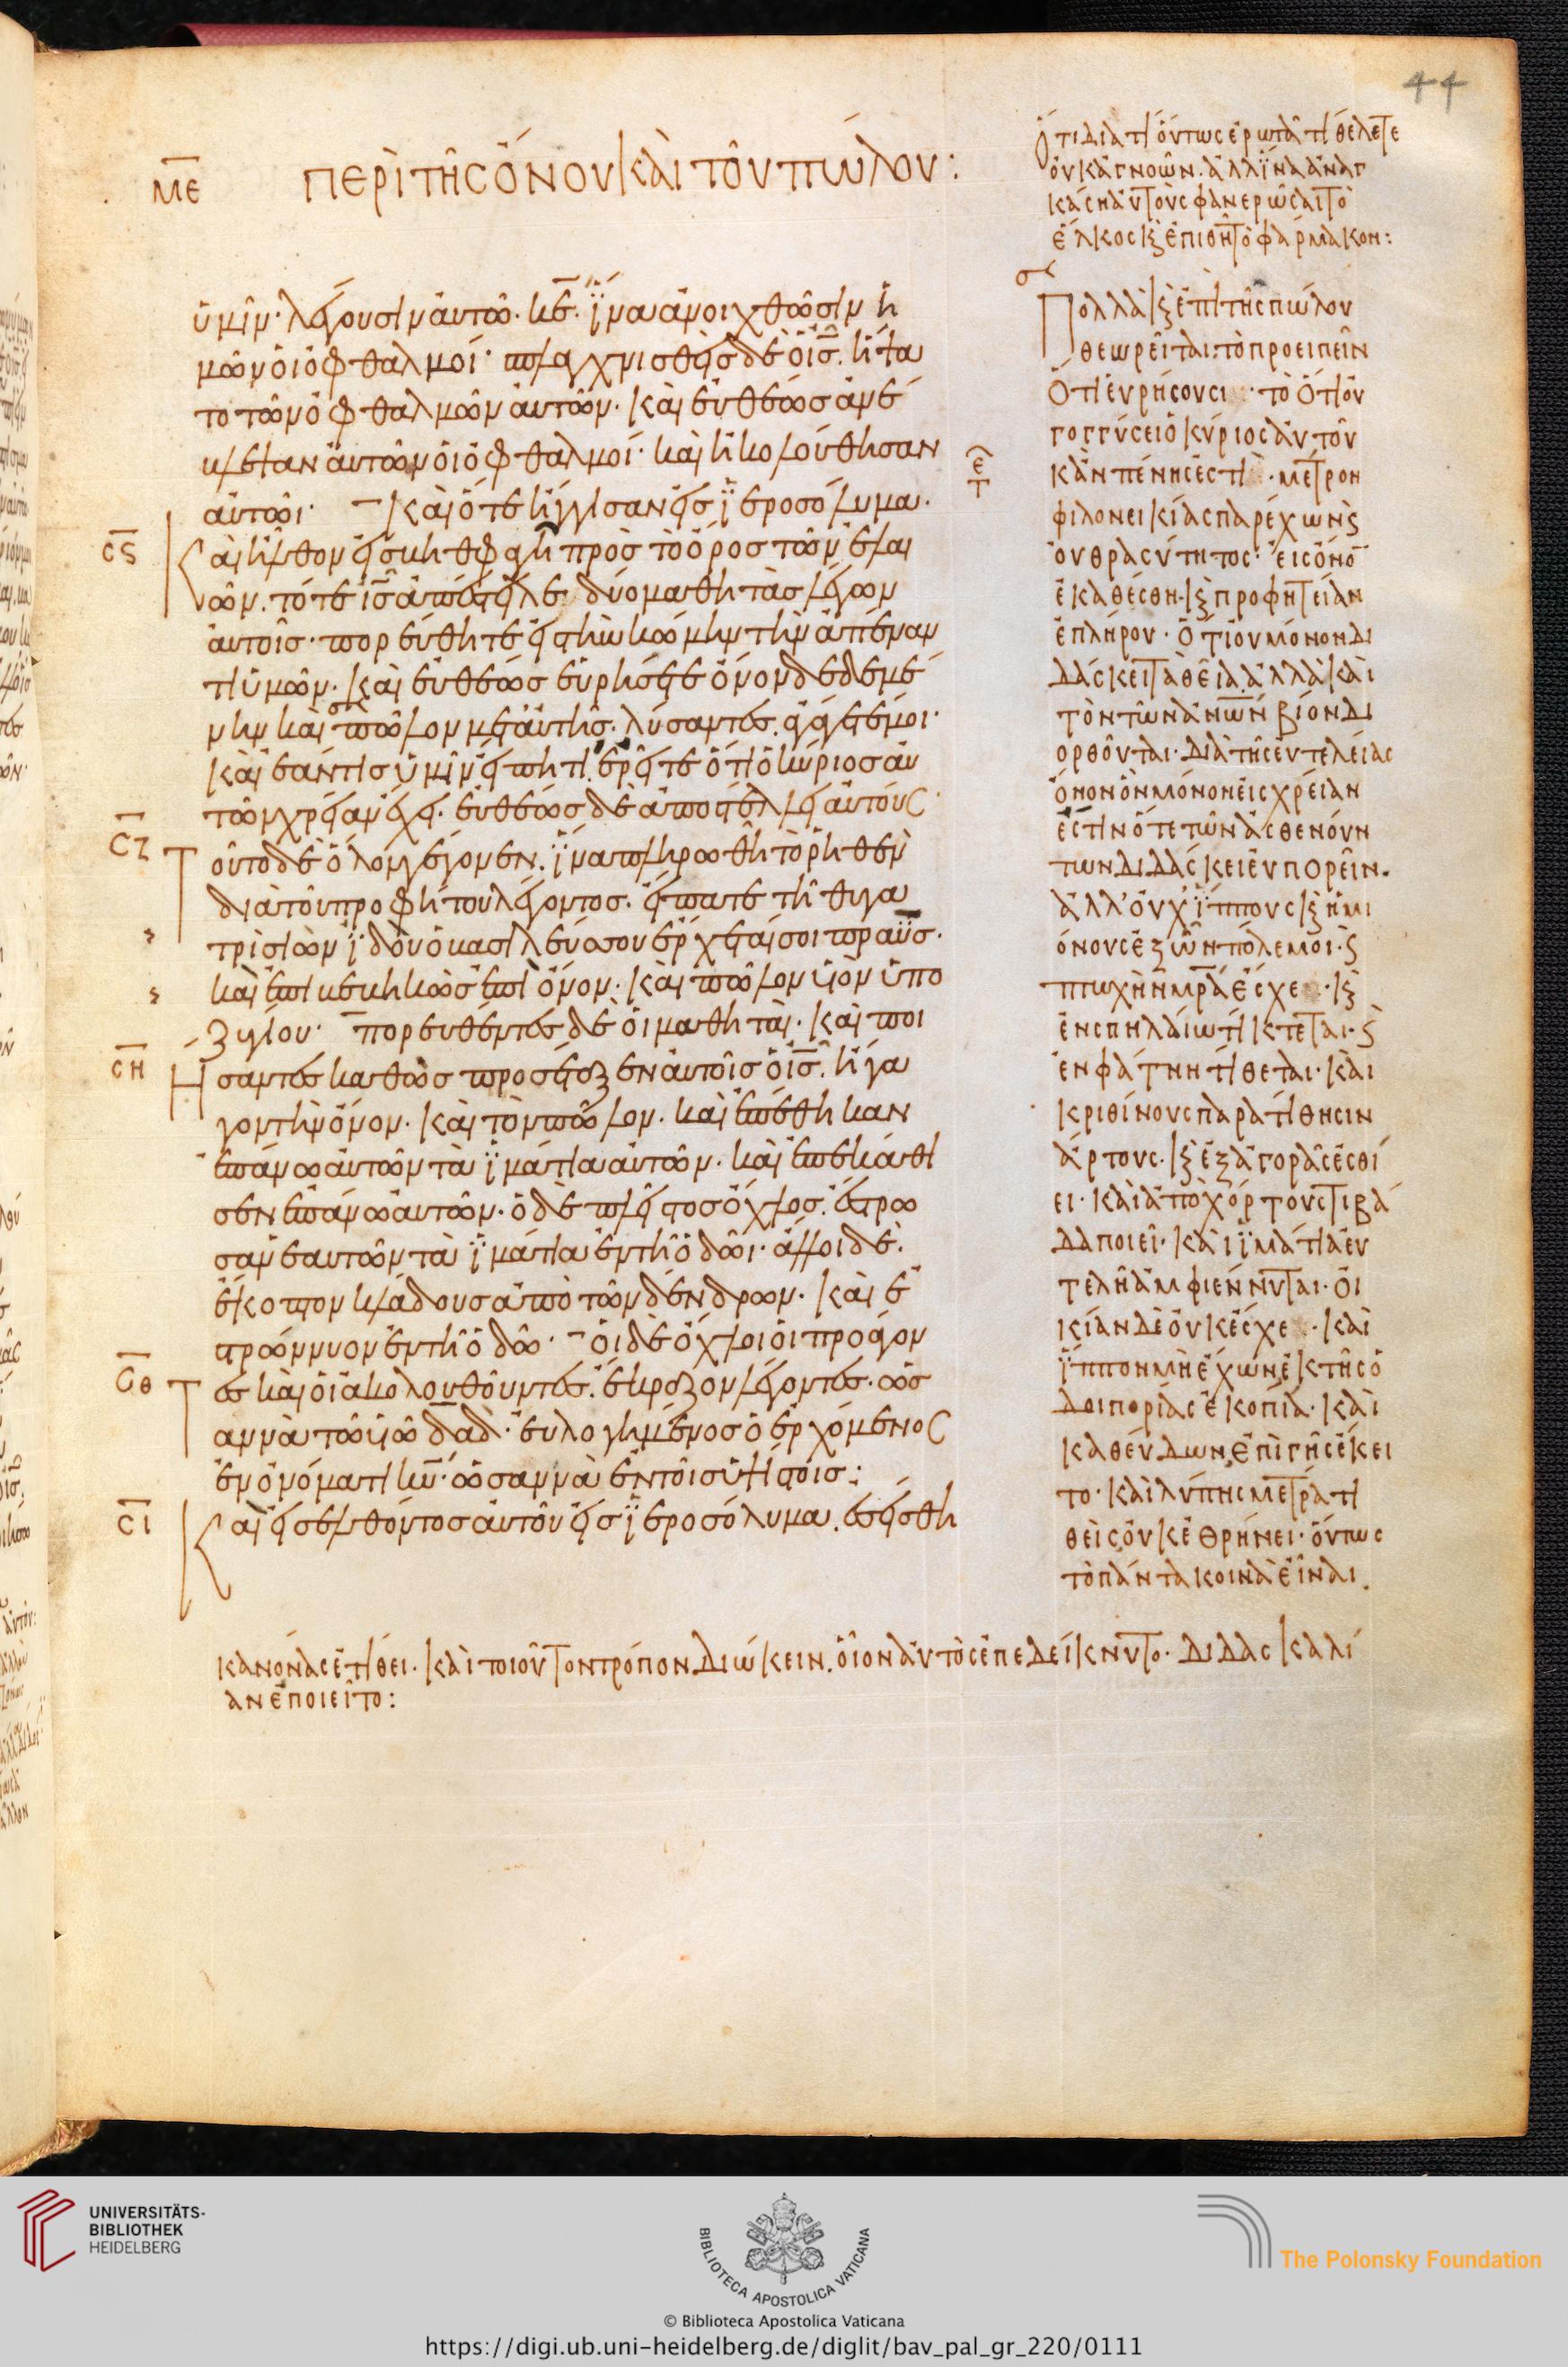 44
ΜΕ ΠΕΡΙ ΤΗΣ ὌΝΟΥ ΚΑΙ ΤΟΥ ΠΩΛΟΥ:
ὑμῖν· λέγουσιν αὐτῶ· κε̄. ἵνα ἀνοιχθῶσιν ἡ
μῶν ὁι ὀφθαλμοί· σπλαγχνισθεὶς δὲ ὁ ις̄. ἥψα
το τῶν ὀφθαλμῶν αὐτῶν· καὶ ἐυθέως ἀνέ
βλεψαν ἀυτῶν ὁι ὀφθαλμοί· καὶ ἠκολούθησαν
αὐτῶι· καὶ ὅτε ἤγγισαν εἰς ἱεροσόλυμα·
ϹϚ Καὶ ἦλθον εἰς βηθφαγὴ πρὸς τὸ ὄρος τῶν ἐλαι
ῶν. τότε ις̄ ἀπέστειλε δύο μαθητὰς λέγων
ἀυτοῖς· πορεύθητε εἰς τὴν κώμην τὴν ἀπέναν
τι ὑμῶν· καὶ ἐυθέως ἑυρήσετε ὄνον δεδεμέ
νην καὶ πῶλον μετ ἀυτῆς· λύσαντες ἀγάγετέ μοι·
καὶ ἐάν τις ὑμῖν εἴπη τί ἐρεῖτε ὅτι ὁ κύριος ἀυ
τῶν χρείαν ἔχει· ἐυθέως δὲ ἀποστέλλει ἀυτούς·
ϹΖ Τοῦτο δὲ ὅλον γέγονεν. ἵνα πληρωθῆ τὸ ῥηθὲν
διὰ τοῦ προφήτου λέγοντος· εἴπατε τῆ θυγα
τρὶ σιών ἰδοὺ ὁ βασιλεύς σου ἔρχεταί σοι πραΰς·
καὶ ἐπιβεβηκὼς ἐπὶ ὄνον· καὶ πῶλον υἱὸν ὑπο
ζυγίου· πορευθέντες δὲ ὁι μαθηταὶ· καὶ ποι
ϹΗ Ησαντες καθὼς προσέταξεν ἀυτοῖς ὁ ις̄. ἤγα
γον τὴν ὄνον· καὶ τὸν πῶλον· καὶ ἐπέθηκαν
ἐπάνω ἀυτῶν τὰ ἱμάτια ἀυτῶν· καὶ ἐπεκάθι
σεν ἐπάνω ἀυτῶν· ὁ δὲ πλεῖστος ὄχλος. ἔστρω
σαν ἑαυτῶν τὰ ἱμάτια ἐν τῆ ὁδῶι· ἄλλοι δὲ.
ἔκοπτον κλάδους ἀπὸ τῶν δένδρων· καὶ ἐ
στρώννυον ἐν τῆ ὁδῶ· ὁι δὲ ὄχλοι ὁι προάγον
ϹΘ Τες καὶ ὁι ἀκολουθοῦντες. ἔκραζον λέγοντες· ὡς
αννὰ τῶ υἱῶ δᾱδ· ἐυλογημένος ὁ ἐρχόμενος
ἐν ὀνόματι κῡ· ὡσαννὰ ἐν τοῖς ὑψίστοις:
ϹΙ Καὶ εἰσελθόντος ἀυτοῦ εἰς ἱεροσόλυμα. ἐσείσθη
Ὅτι διὰ τί ὅυτως ἐρωτᾶ τί θέλετε
ὀυκ ἀγνοῶν. ἀλλ ἵνα ἀναγ
κάση ἀυτοὺς φανερῶσαι τὸ
ἕλκος κ ἐπιθῆ τὸ φάρμακον:
Πολλὰ κ ἐπὶ τῆς πώλου
θεωρεῖται: τὸ προειπεῖν
ὅτι ἑυρήσουσι· τὸ ὅτι ὀυ
γογγύσει ὁ κύριος ἀυτοῦ
κἂν πένης ἐστὶ· μέτρον
φιλονεικίας παρέχων
ὀυ θρασύτητος· εἰς ὄνον
ἐκαθέσθη· κ προφητείαν
ἐπλήρου· ὅτι ὀυ μόνον δι
δάσκει τὰ θεῖα ἀλλὰ καὶ
τὸν τῶν ἀνων̄ βίον δι
ορθοῦται· διὰ τῆς ἐυτελείας
ὄνον ὃν μόνον εἰς χρείαν
ἐστὶν ὅτε τῶν ἀσθενούν
των διδάσκει ἐυπορεῖν.
ἀλλ' ὀυχ ἵππους κ ἡμι
όνους ἐζῶν πόλεμοι·
πτωχὴ ημρᾱ ἔσχε· κ
ἐν σπηλαίω τίκτεται·
ἐν φάτνη τίθεται· καὶ
κριθίνους παρατίθησιν
ἄρτους· κ ἐξ ἀγορᾶς ἐσθί
ει· καὶ ἀπὸ χόρτου στιβά
δα ποιεῖ· καὶ ἱμάτια ἐυ
τελῆ ἀμφιέννυται· ὀι
κίαν δὲ ὀυκ ἔσχε· καὶ
ἵππον μὴ ἔχων ἐκ τῆς ὁ
δοιπορίας ἐκοπία· καὶ
καθεύδων ἐπὶ γῆς ἔκει
το· καὶ λύπης μετρα τι
θεὶς ὀυκ ἐθρήνει· ὅυτως
τὸ πάντα κοινὰ εἶναι.
κανόνας ἐτίθει· καὶ τοιοῦτον τρόπον διώκειν. ὁῖον ἀυτὸς ἐπεδείκνυτο· διδασκαλί
αν ἐποιεῖτο:
UNIVERSITÄTS-
BIBLIOTHEK
HEIDELBERG
BIBLIOTECA APOSTOLICA VATICANA
The Polonsky Foundation
© Biblioteca Apostolica Vaticana
https://digi.ub.uni-heidelberg.de/diglit/bav_pal_gr_220/0111